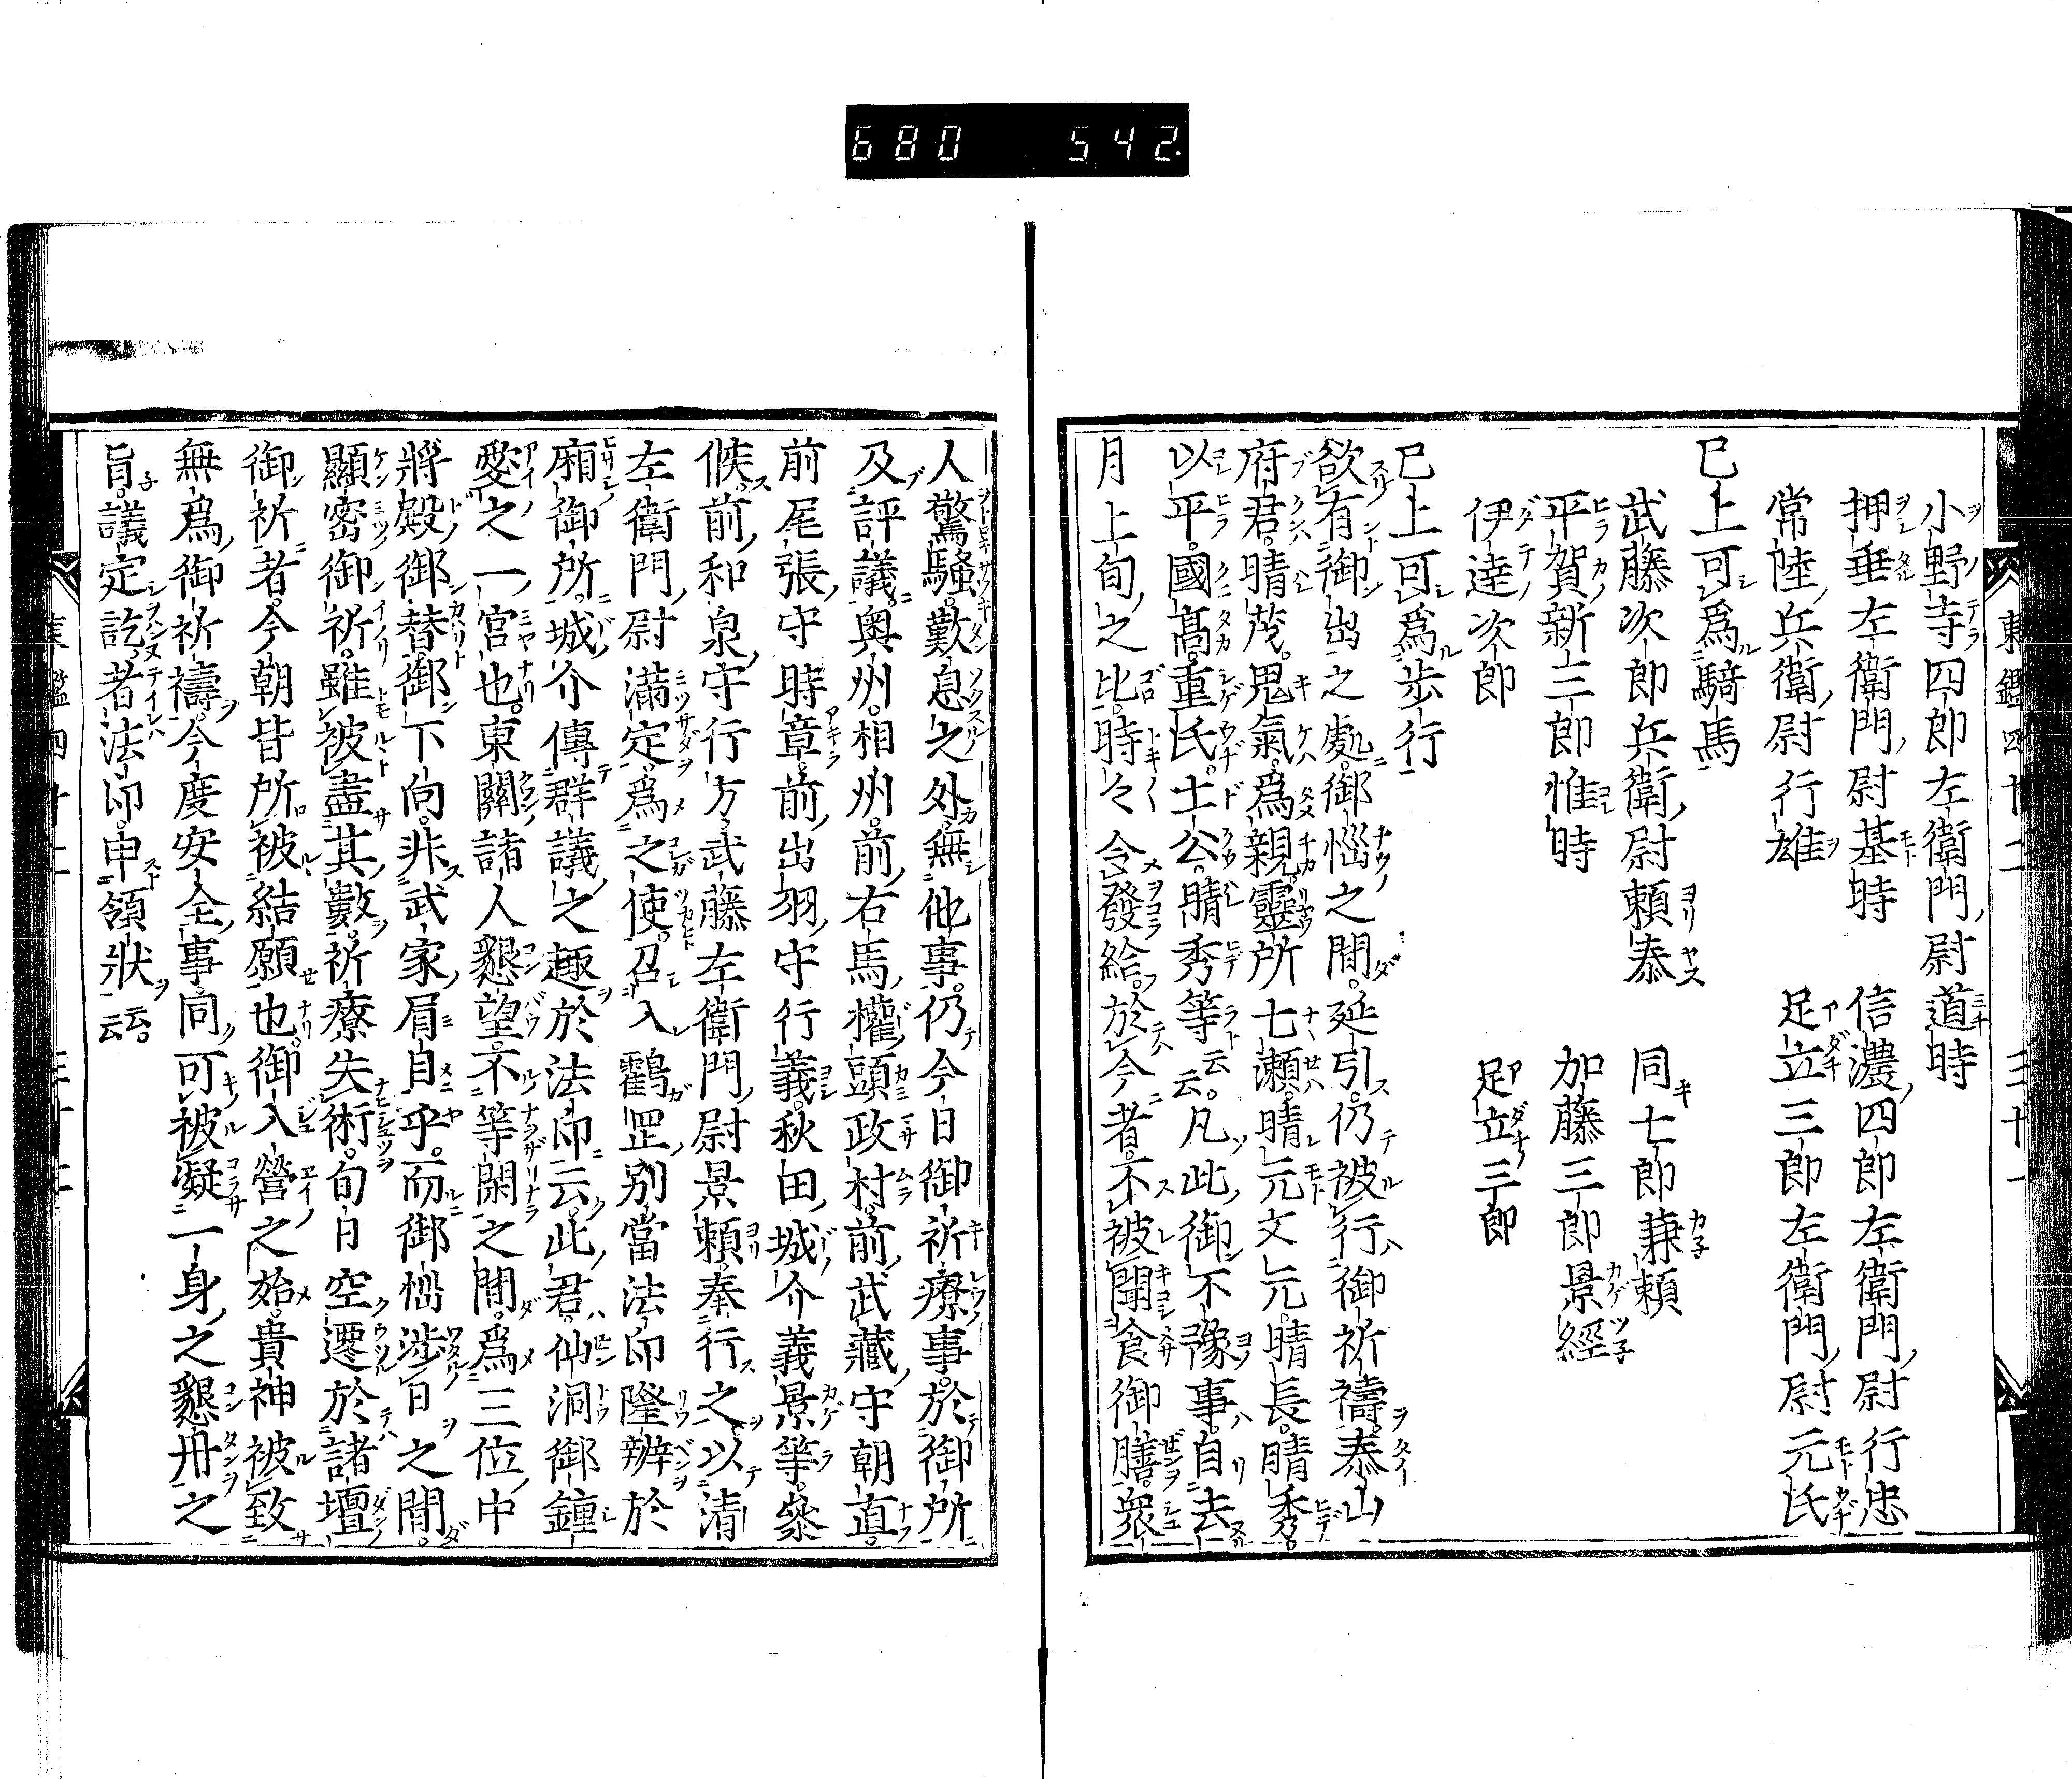 680 542.
東鑑四十二 三十一
小野寺四郎左衛門尉道時
押垂左衛門尉基時 信濃四郎左衛門尉行忠
常陸兵衛尉行雄 足立三郎左衛門尉元氏
已上可爲騎馬
武藤次郎兵衛尉頼泰 同七郎兼頼
平賀新三郎惟時 加藤三郎景經
伊達次郎 足立三郎
已上可爲歩行
欲有御出之處御惱之間。延引。仍被行御祈禱。泰山
府君。晴茂。鬼氣。爲親。靈所七瀬。晴元文元。晴長。晴秀。
以平。國髙。重氏。土公。晴秀等云云。凡此御不豫事。自去
月上旬之比。時々令發給。於今者。不被聞食御膳。衆
人驚騒。歎息之外。無他事。仍今日御祈療事。於御所
及評議。奥州。相州。前右馬權頭政村。前武藏守朝直。
前尾張守時章。前出羽守行義。秋田城介義景等。參
候前和泉守行方。武藤左衛門尉景頼。奉行之。以清
左衛門尉滿定。爲之使。召入鸖罡別當法印隆辨於
廂御所。城介傳群議之趣於法印云。此君。仙洞御鐘
愛之一宮也。東關諸人懇望。不等閑之間。爲三位中
將殿御替。御下向。非武家眉自乎。而御惱渉日之間。
顯密御祈。雖被盡其數。祈療失術。旬日空遷。於諸壇
御祈者。今朝皆所被結願也。御入營之始。貴神被致
無爲御祈禱。今度安全事。同可被凝一身之懇丹之
旨。議定訖。者法印申領狀云云。